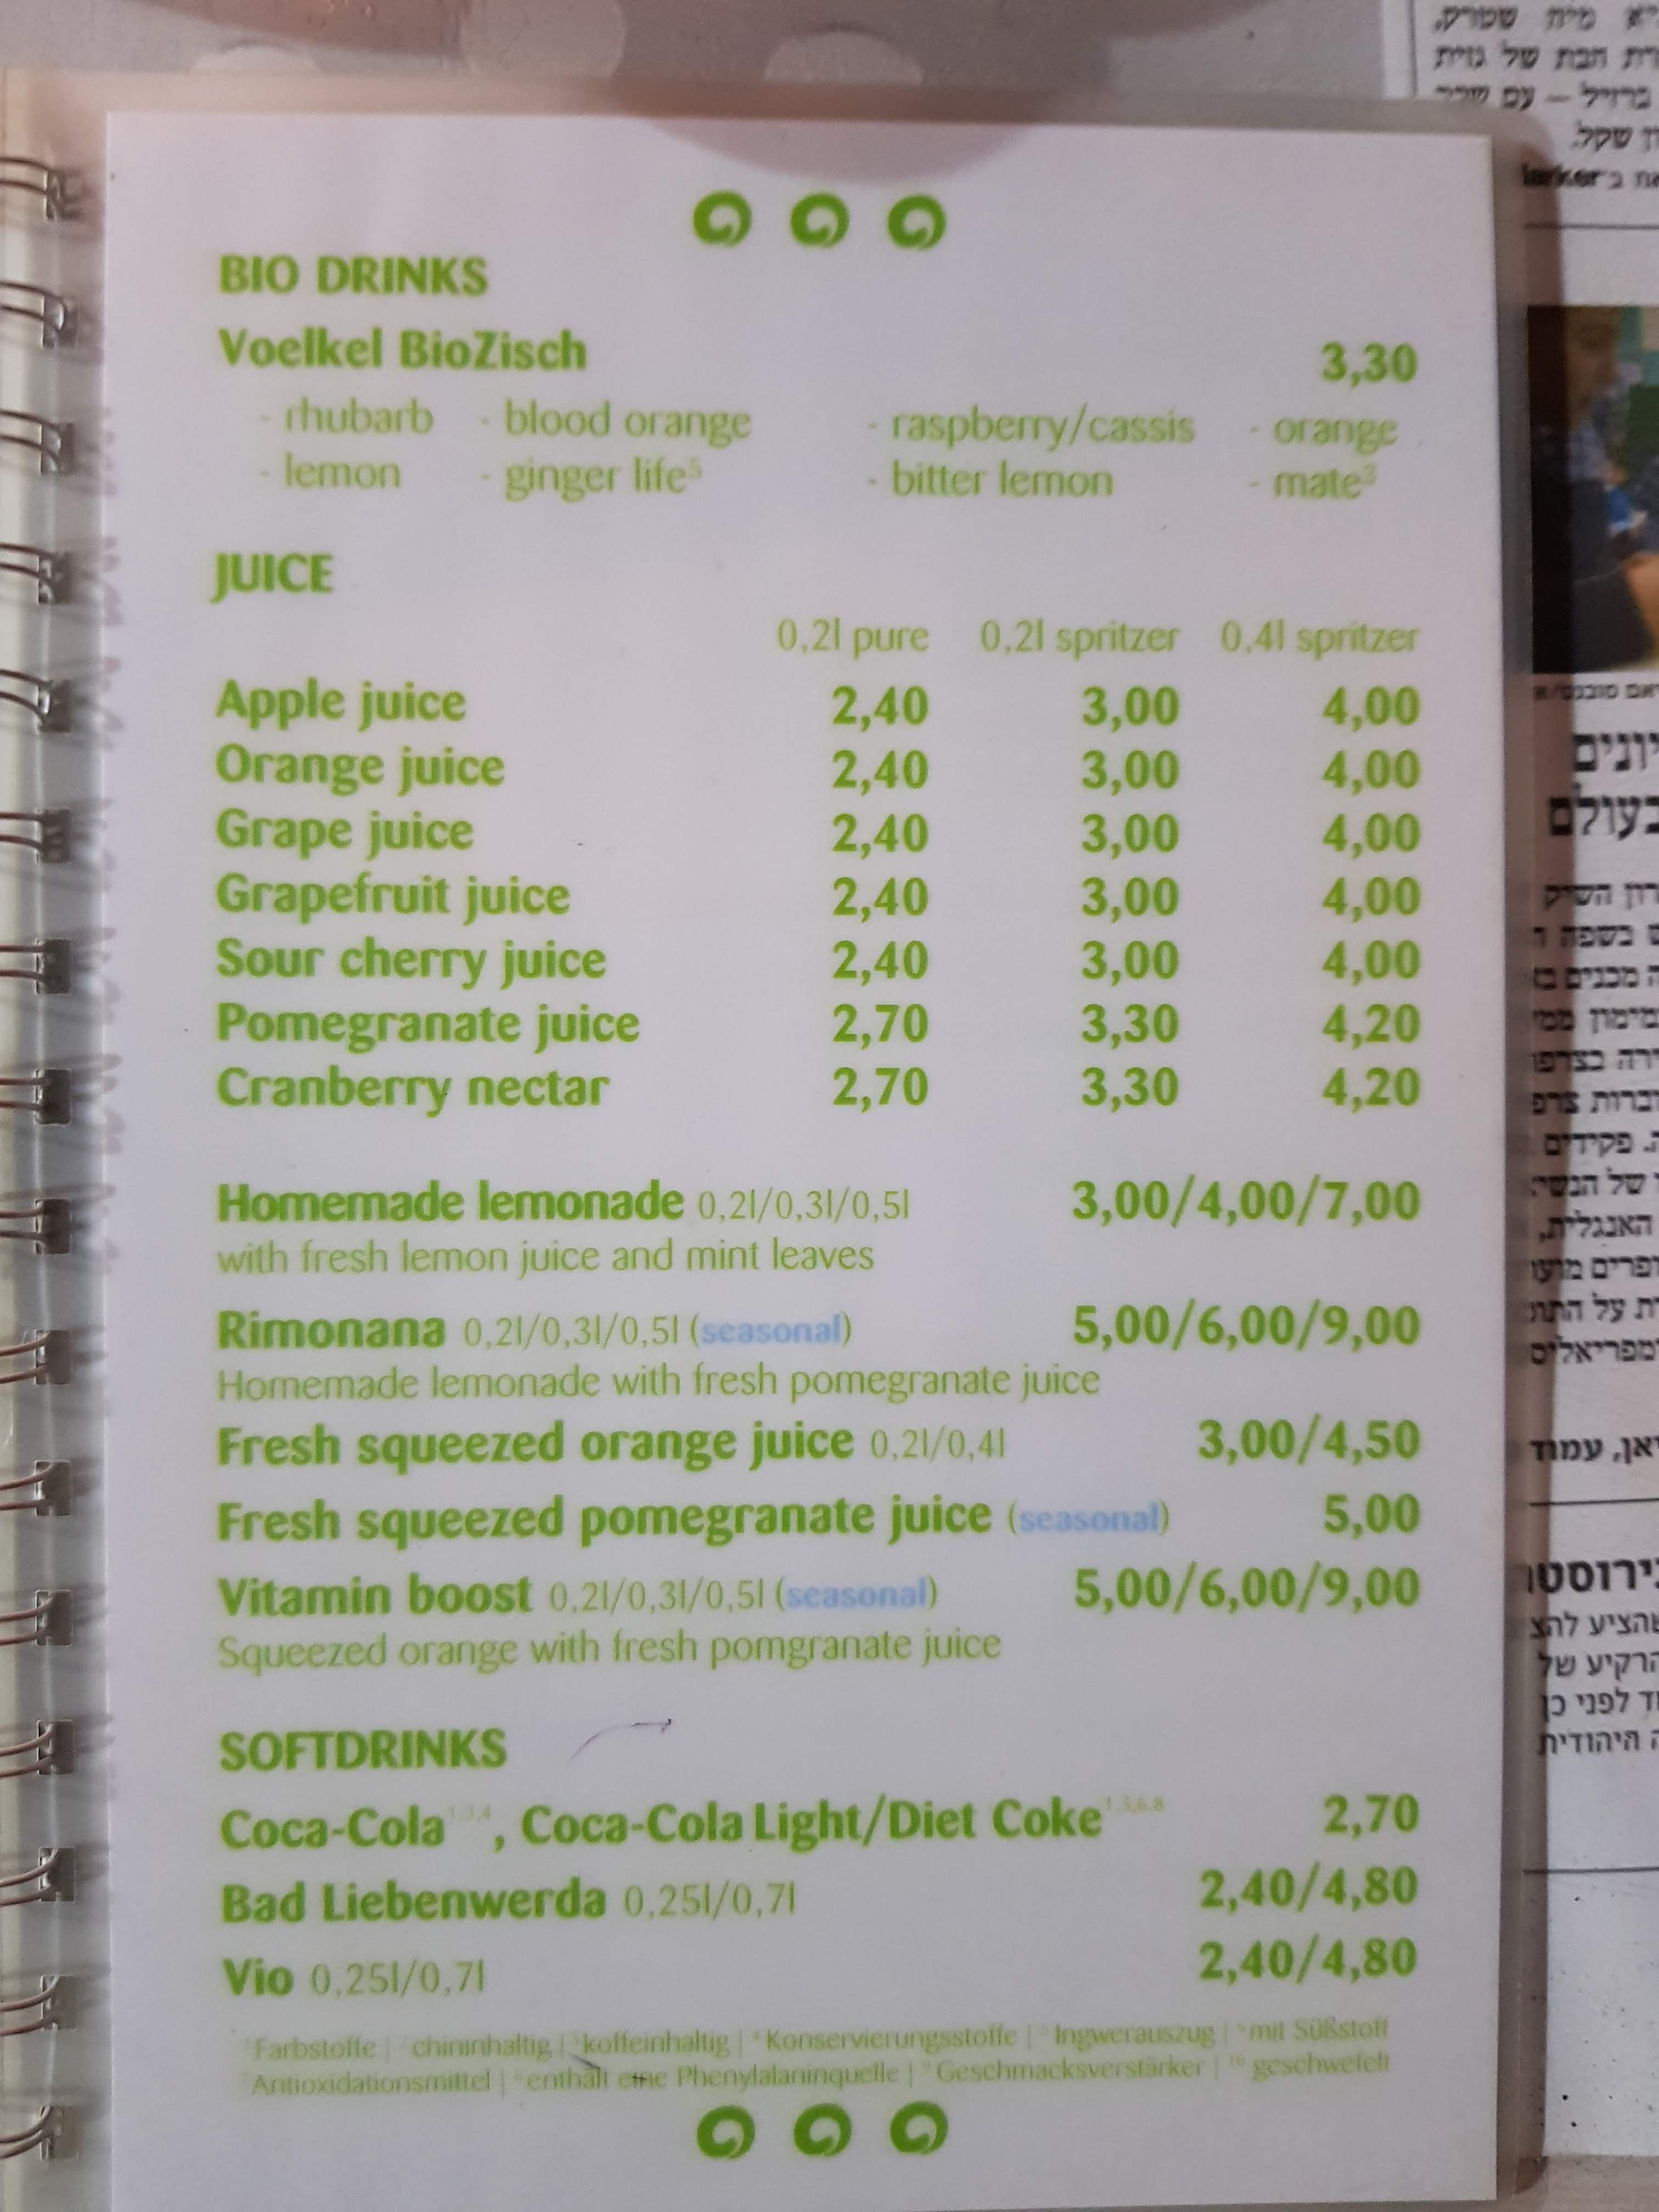 BIO DRINKS
Voelkel BioZisch 3,30
- rhubarb - blood orange - raspberry/cassis - orange
- lemon - ginger life⁵ - bitter lemon - mate³
JUICE
0,2l pure 0,2l spritzer 0,4l spritzer
Apple juice 2,40 3,00 4,00
Orange juice 2,40 3,00 4,00
Grape juice 2,40 3,00 4,00
Grapefruit juice 2,40 3,00 4,00
Sour cherry juice 2,40 3,00 4,00
Pomegranate juice 2,70 3,30 4,20
Cranberry nectar 2,70 3,30 4,20
Homemade lemonade 0,2l/0,3l/0,5l 3,00/4,00/7,00
with fresh lemon juice and mint leaves
Rimonana 0,2l/0,3l/0,5l (seasonal) 5,00/6,00/9,00
Homemade lemonade with fresh pomegranate juice
Fresh squeezed orange juice 0,2l/0,4l 3,00/4,50
Fresh squeezed pomegranate juice (seasonal) 5,00
Vitamin boost 0,2l/0,3l/0,5l (seasonal) 5,00/6,00/9,00
Squeezed orange with fresh pomgranate juice
SOFTDRINKS
Coca-Cola ¹·³·⁴, Coca-Cola Light/Diet Coke ¹·³·⁶·⁸ 2,70
Bad Liebenwerda 0,25l/0,7l 2,40/4,80
Vio 0,25l/0,7l 2,40/4,80
Farbstoffe | chininhaltig | ³koffeinhaltig | ⁴Konservierungsstoffe | Ingwerauszug | mit Süßstoff
Antioxidationsmittel | enthält eine Phenylalaninquelle | Geschmacksverstärker | geschwefelt
מית שטרק,
הבת של גוית
ברזיל – עם
שקל.
בעולם
השיק
בשפה
מכנים
בצרפ
פקידים
של
האנגלית,
על
עמוד
להצ
הרקיע של
לפני כן
היהודית